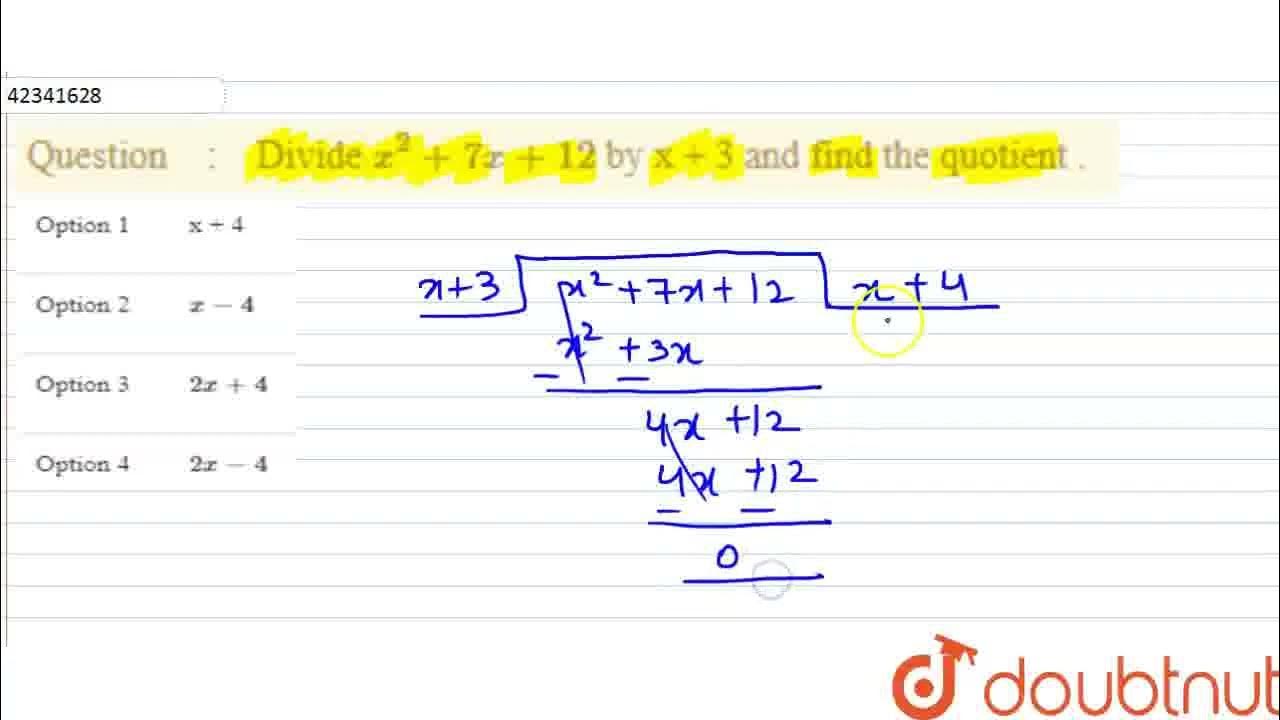 42341628
Question : Divide x² + 7x + 12 by x + 3 and find the quotient .
Option 1 x + 4
Option 2 x − 4
Option 3 2x + 4
Option 4 2x − 4
x+3 x² + 7x + 12 x + 4
x² + 3x
− −
4x + 12
4x + 12
− −
0
doubtnut